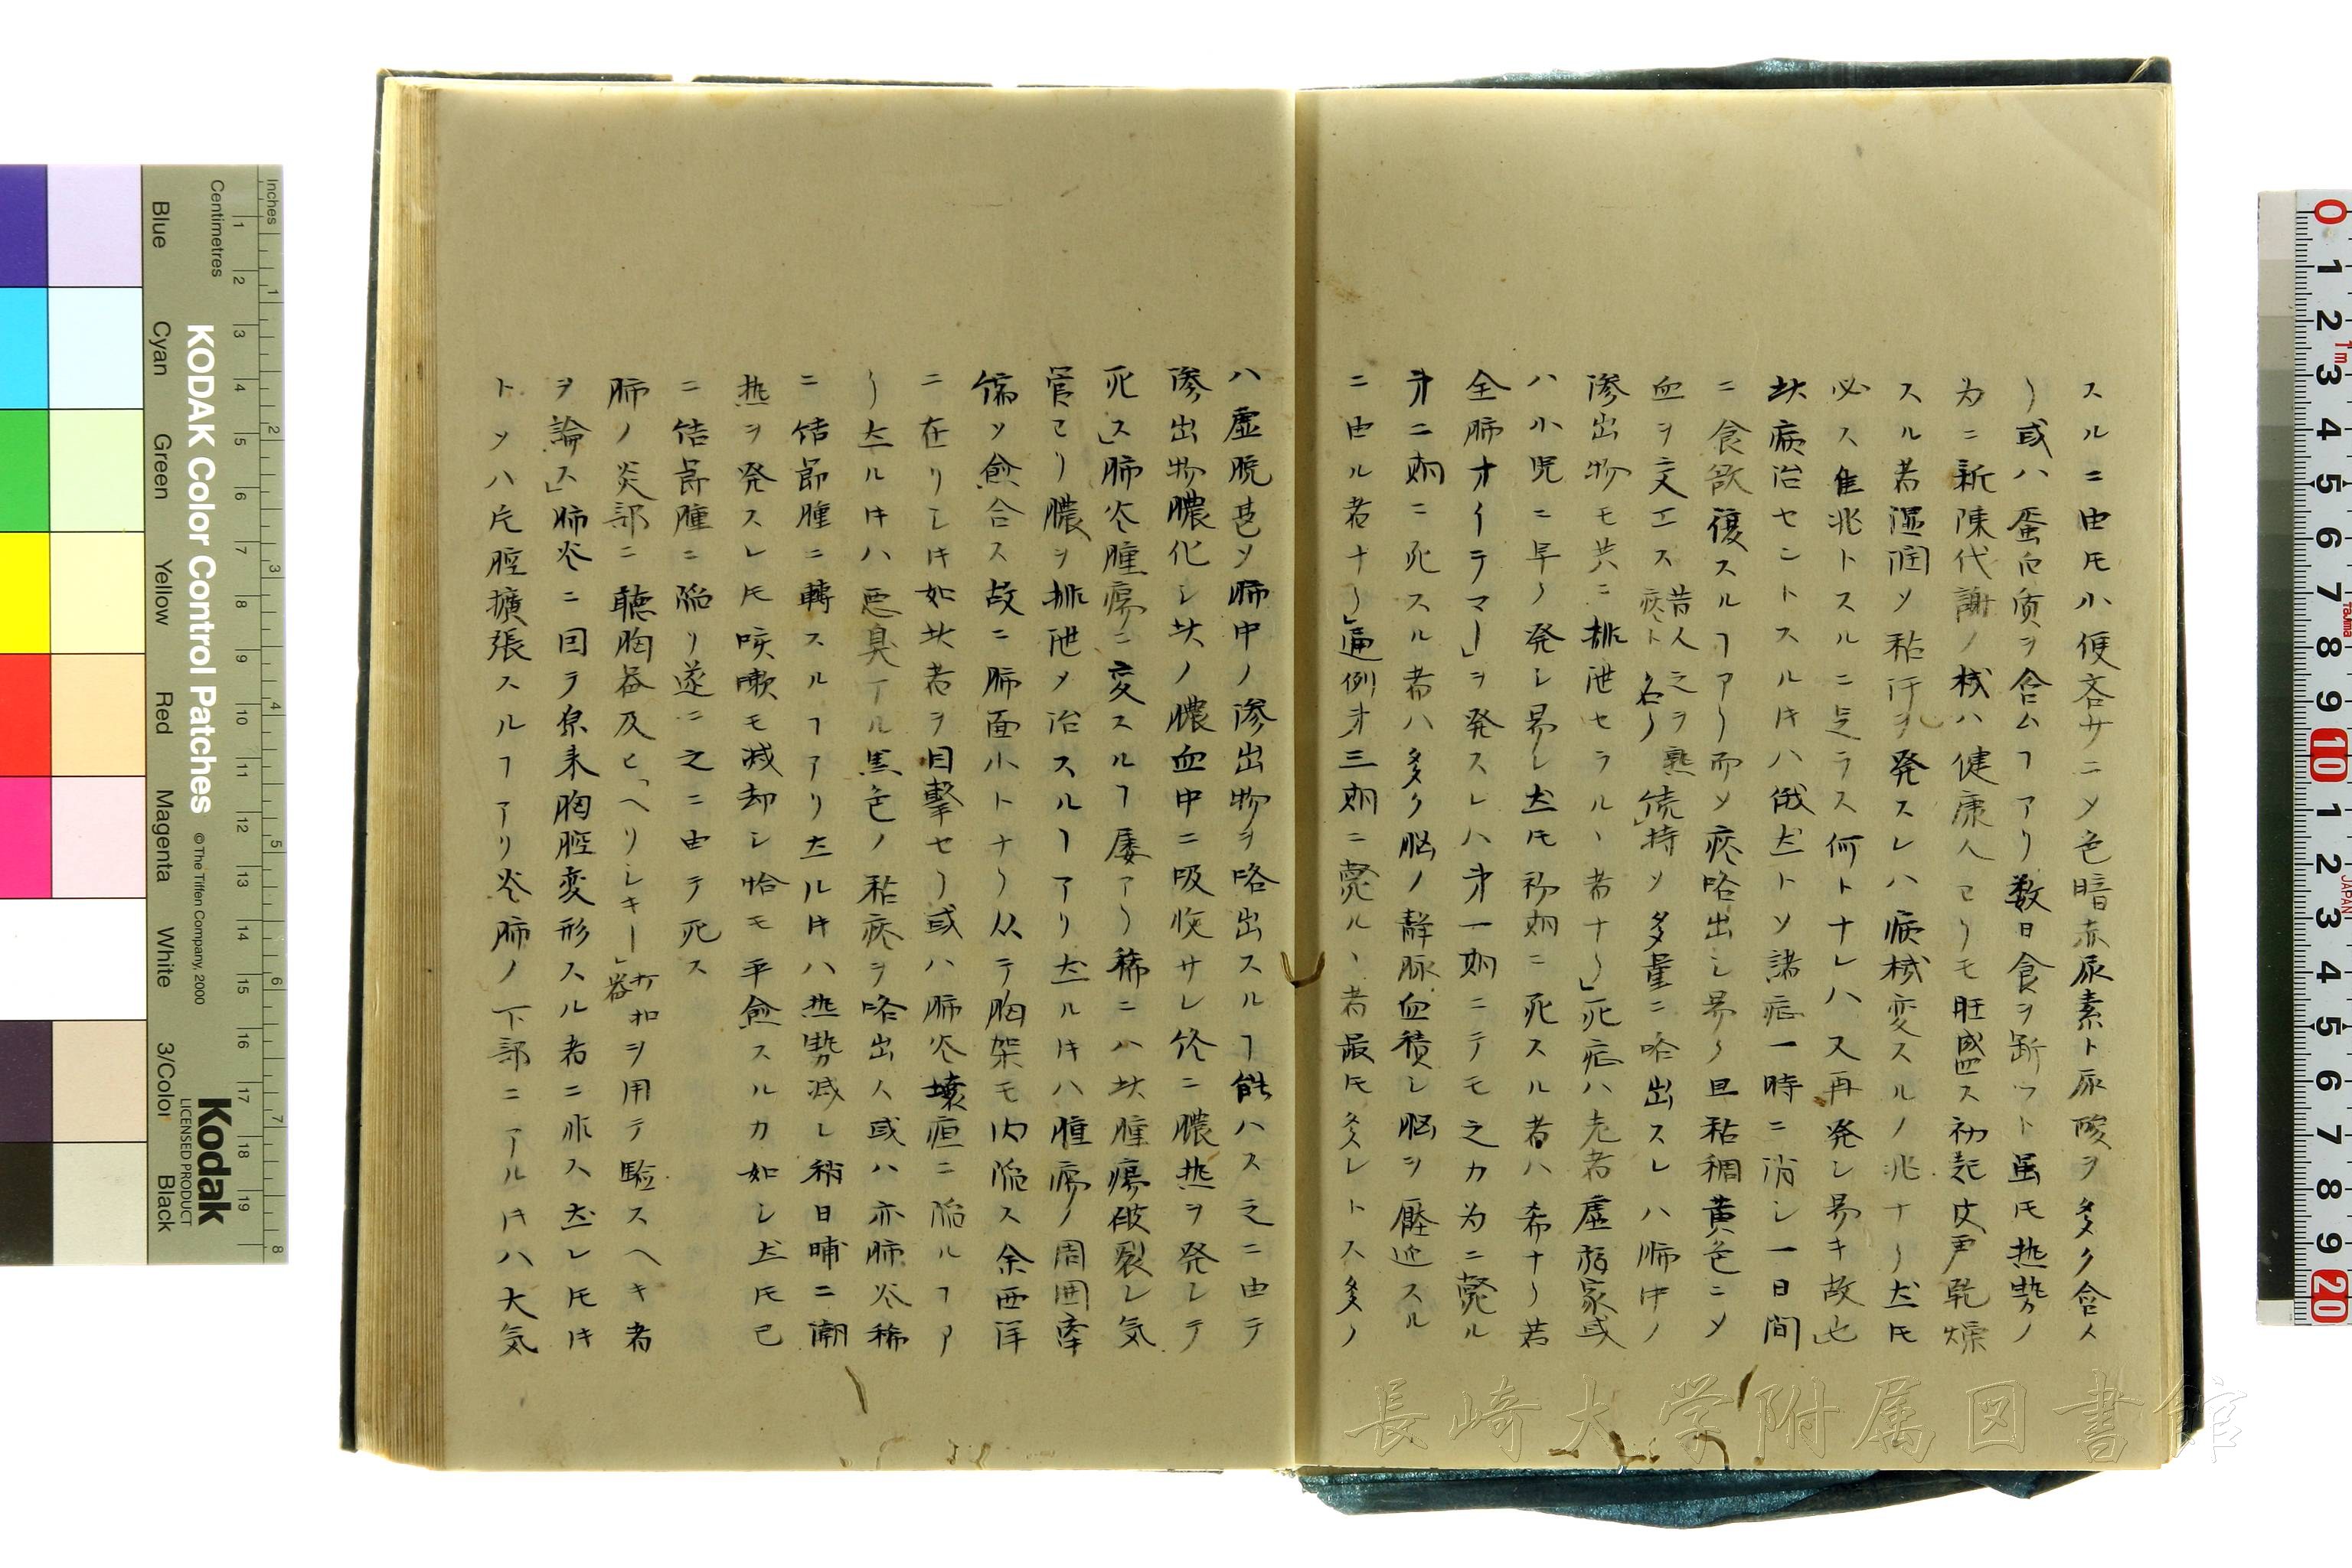 スルニ由𪜈小便吝サニ〆色暗赤尿素ト尿酸ヲ多ク含ム
或ハ蛋白质ヲ含ムヿアリ数日食ヲ断ツト虽𪜈热勢ノ
为ニ新陳代謝ノ棫ハ健康人ヨリモ旺盛ス初起皮ヲ乾燥
スル者湿润〆粘汗ヲ発スレハ病棫変スルノ兆ナリ尤𪜈
必ス佳兆トスルニ足ラス何トナレハ又再発シ易キ故也
此病治セントスル片ハ俄然ト〆諸症一時ニ消シ一日間
ニ食欲復スルヿアリ而〆痰咯出シ易ク且粘稠黄色ニ〆
血ヲ交エス
昔人之ヲ熟
痰ト名ク
続持〆多量ニ咯出スレハ肺中ノ
滲出物モ共ニ排泄セラルヽ者ナリ」死症ハ老者虚弱家或
ハ小児ニ早ク発シ易シ尤𪜈初期ニ死スル者ハ希ナリ若
全肺オイテマー」ヲ発スレハ㐧一期ニテモ之カ为ニ斃ル
㐧二期ニ死スル者ハ多ク脳ノ静脈血積シ脳ヲ壓迫スル
ニ由ル者ナリ」通例㐧三期ニ斃ルヽ者最𪜈多シトス多ク
ハ虚脱甚〆肺中ノ滲出物ヲ咯出スルヿ能ハス之ニ由テ
滲出物膿化シ此ノ膿血中ニ吸收サレ终ニ膿热ヲ発シテ
死ス」肺炎腫瘍ニ変スルヿ屡アリ稀ニハ此腫瘍破裂シ気
管ヨリ膿ヲ排泄〆治スルヿアリ尤ル片ハ腫瘍ノ周囲牽
縮〆愈合ス故ニ肺面小トナリ从テ胸架モ内陥ス余西洋
ニ在リシ片如此者ヲ目撃セリ或ハ肺炎壊疽ニ陥ルヿア
リ尤ル片ハ悪臭アル黒色ノ粘痰ヲ咯出ス或ハ亦肺炎稀
ニ结節腫ニ轉スルヿアリ尤ル片ハ热勢减シ稍日晡ニ潮
热ヲ発スレ𪜈咳嗽モ减却シ恰モ平愈スルカ如シ尤𪜈已
ニ结節腫ニ陥リ遂ニ之ニ由テ死ス
肺ノ炎部ニ聴胸器及ヒ「ヘリシキー」
打扣
器
ヲ用テ験スヘキ者
ヲ論ス」肺炎ニ因テ原来胸腔変形スル者ニ非ス尤レ𪜈片
ト〆ハ片腔擴張スルヿアリ炎肺ノ下部ニアル片ハ大気
長崎大学附属図書館
KODAK Color Control Patches
© The Tiffen Company, 2000
Kodak
LICENSED PRODUCT
Inches
Centimetres
Blue
Cyan
Green
Yellow
Red
Magenta
White
3/Color
Black
JAPAN